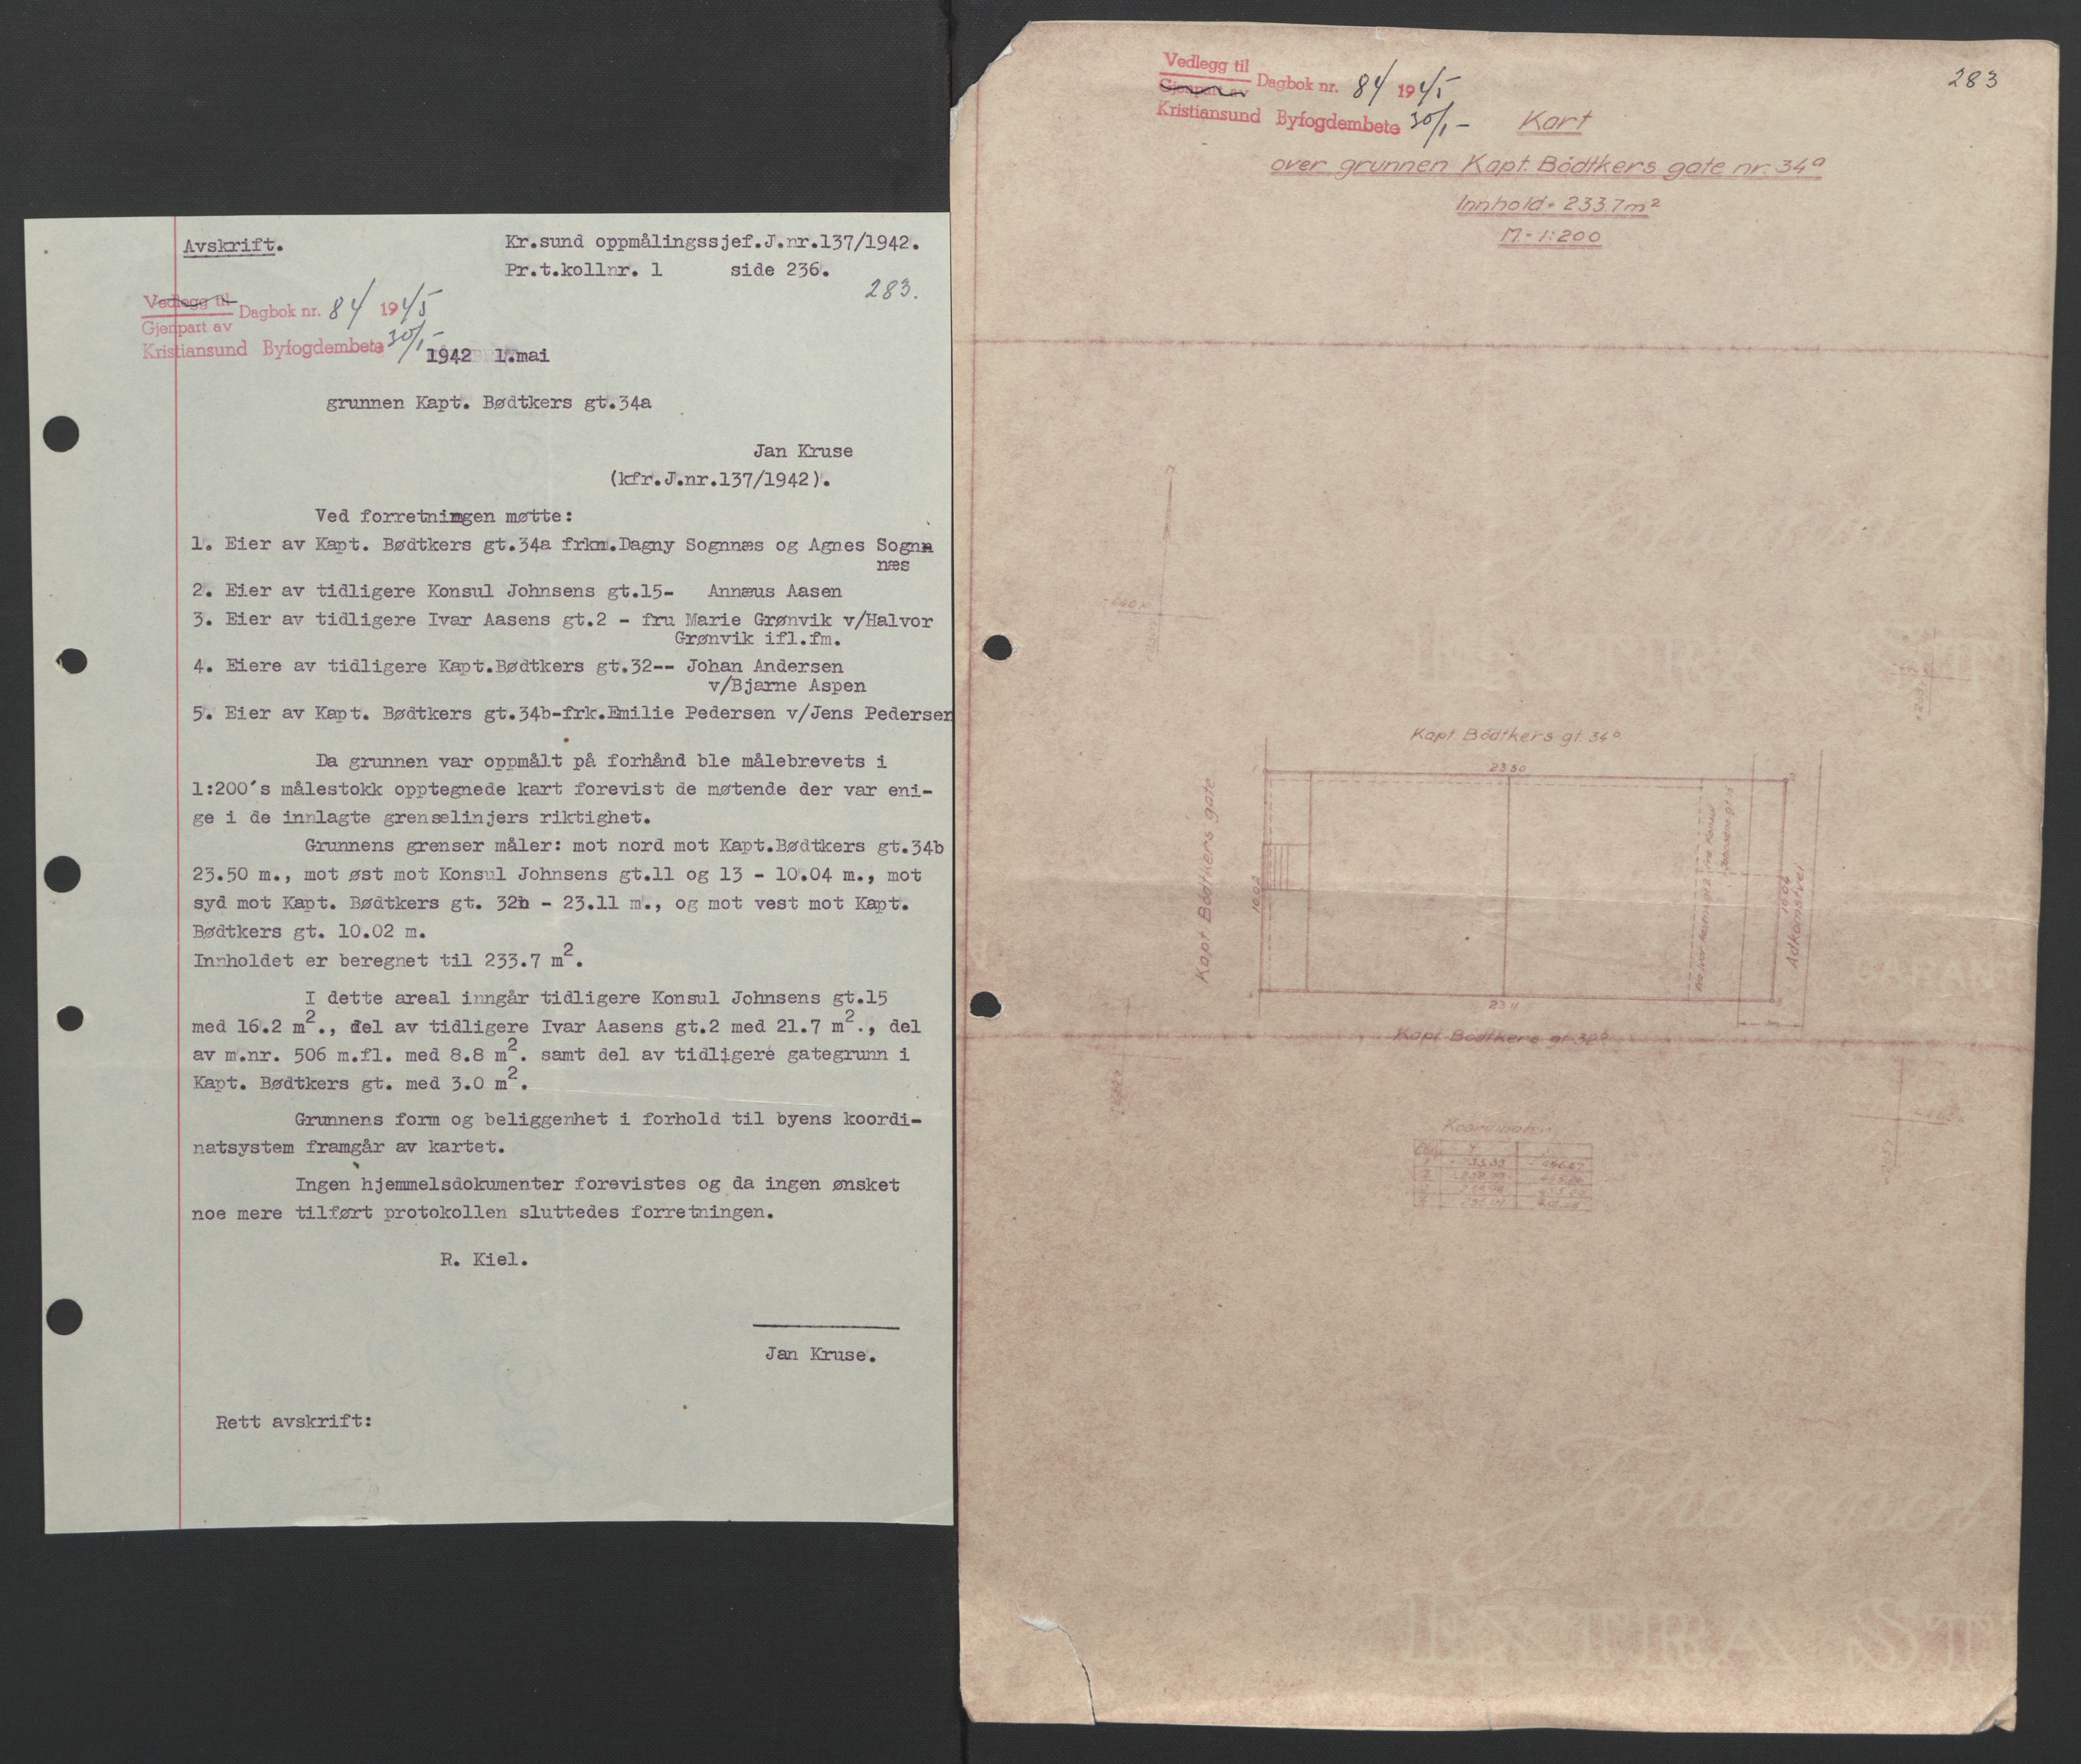 Avskrift.
Kr.sund oppmålingssjef.J.nr.137/1942.
Pr.t.kollnr. 1 side 236.
283.
Vedlegg til
Gjenpart av
Dagbok nr. 84 1945
Kristiansund Byfogdembete 30/1-
1942 1.mai
grunnen Kapt. Bødtkers gt.34a
Jan Kruse
(kfr.J.nr.137/1942).
Ved forretningen møtte:
1. Eier av Kapt. Bødtkers gt.34a frkn.Dagny Sognnæs og Agnes Sogn
næs
2. Eier av tidligere Konsul Johnsens gt.15- Annæus Aasen
3. Eier av tidligere Ivar Aasens gt.2 - fru Marie Grønvik v/Halvor
Grønvik ifl.fm.
4. Eiere av tidligere Kapt.Bødtkers gt.32-- Johan Andersen
v/Bjarne Aspen
5. Eier av Kapt. Bødtkers gt.34b-frk.Emilie Pedersen v/Jens Pedersen
Da grunnen var oppmålt på forhånd ble målebrevets i
1:200´s målestokk opptegnede kart forevist de møtende der var eni-
ge i de innlagte grenselinjers riktighet.
Grunnens grenser måler: mot nord mot Kapt.Bødtkers gt.34b
23.50 m., mot øst mot Konsul Johnsens gt.11 og 13 - 10.04 m., mot
syd mot Kapt. Bødtkers gt. 32b - 23.11 m., og mot vest mot Kapt.
Bødtkers gt. 10.02 m.
Innholdet er beregnet til 233.7 m2.
I dette areal inngår tidligere Konsul Johnsens gt.15
med 16.2 m2., del av tidligere Ivar Aasens gt.2 med 21.7 m2., del
av m.nr. 506 m.fl. med 8.8 m2. samt del av tidligere gategrunn i
Kapt. Bødtkers gt. med 3.0 m2.
Grunnens form og beliggenhet i forhold til byens koordi-
natsystem framgår av kartet.
Ingen hjemmelsdokumenter forevistes og da ingen ønsket
noe mere tilført protokollen sluttedes forretningen.
R. Kiel.
Jan Kruse.
Rett avskrift:
Vedlegg til
Gjenpart av
Dagbok nr. 84 1945
Kristiansund Byfogdembete 30/1-
283
Kart
over grunnen Kapt. Bödtkers gate nr. 34a
Innhold = 233.7 m2
M = 1:200
Kapt Bödtkers gt. 34b
23.50
Kapt Bödtkers gate
10.02
10.04
Adkomstvei
23.11
Kapt Bödtkers gt. 32b
Koordinater
Johannot
EXTRA ST